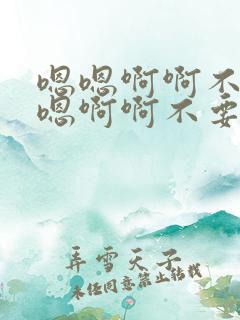 嗯嗯啊啊不
嗯啊啊不要
弄雪天子
未经同意禁止转载